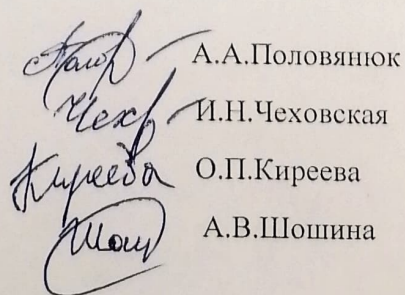 А.А.Половянюк
Чех И.Н.Чеховская
Киреева О.П.Киреева
А.В.Шошина